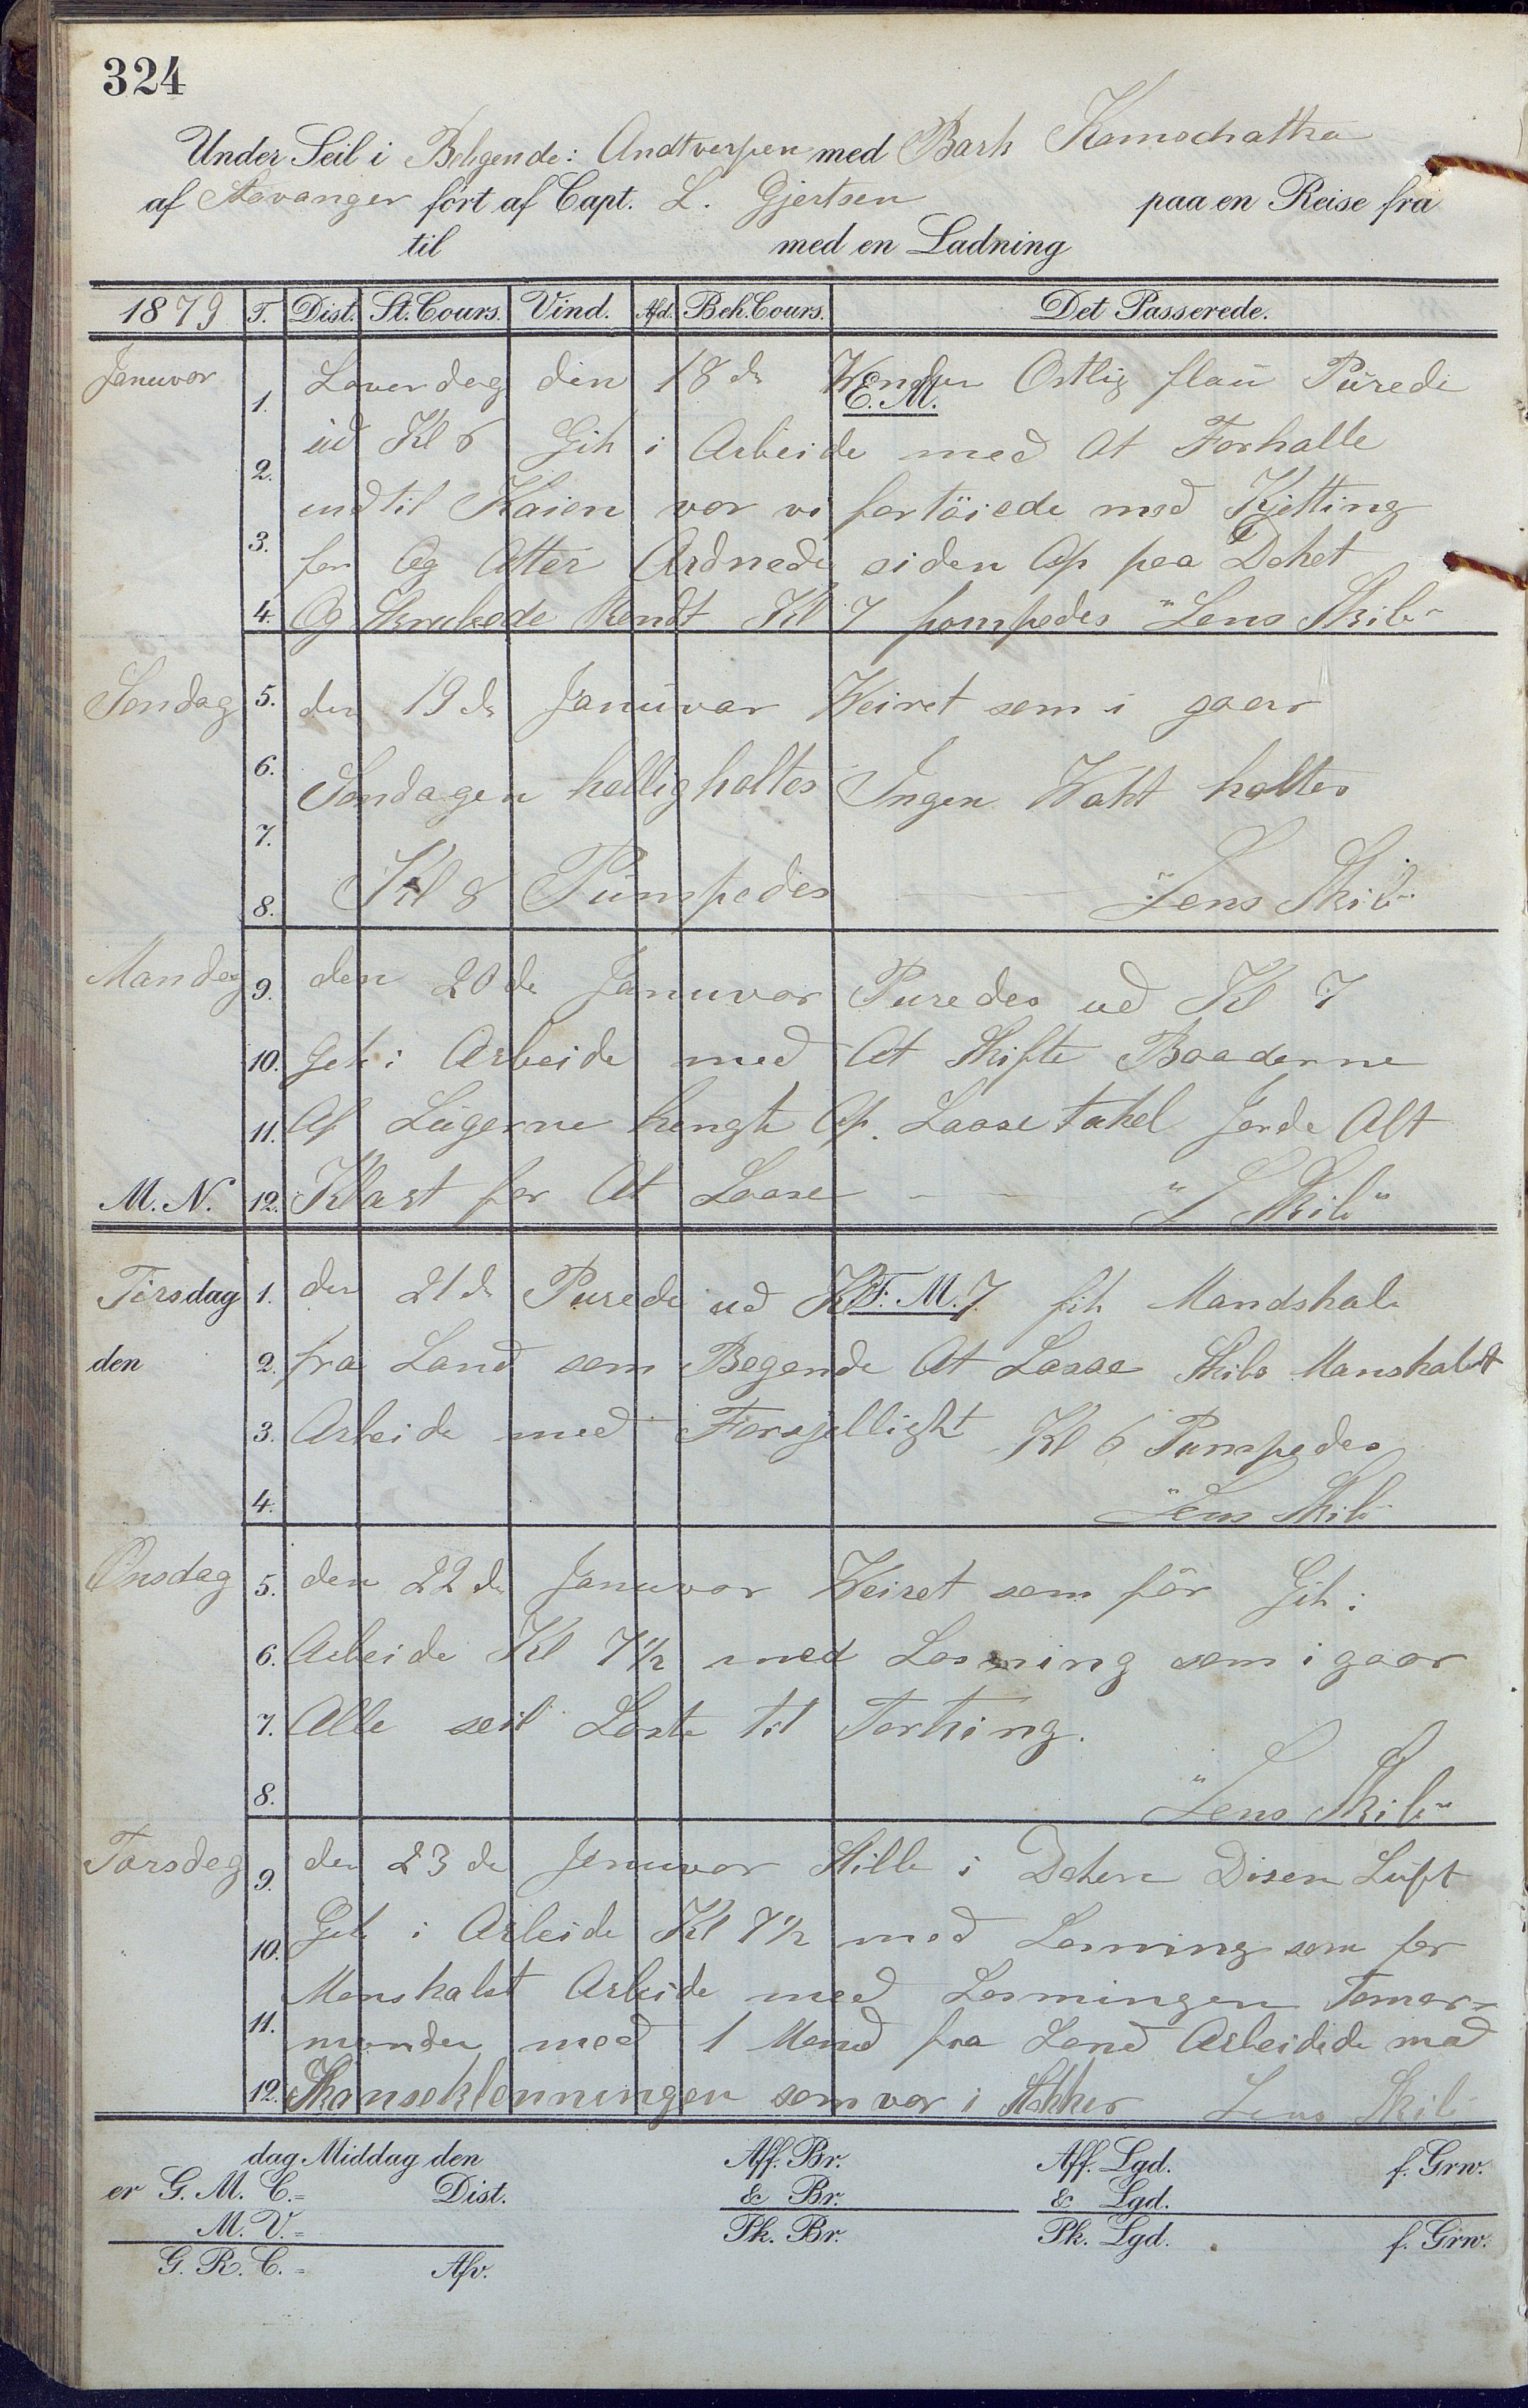 324
Under Seil i Beligende: Andtverpen med Bark Kamschatka
af Stavanger fört af Capt. L. Gjertsen paa en Reise fra
til med en Ladning
1879 T. Dist. St. Cours. Vind. Afd. Beh. Cours. Det Passerede.
Januvar
E. M.
1. Laverdag den 18de Venden Ostlig flau Purede
2. ud Kl 6 Gik i Arbeide med At Forhalle
ind til Kaien var vi fortöiede med Kjetting
3. for Og Atter Ardnede siden Op paa Dekket
4. Og Skrubede Rendt Kl 7 pompedes "Lens Skib"
Sondag 5. den 19de Januvar Veiret som i gaar
6. Sondagen helligholtes Ingen Vakt holtes
7.
8. Kl 8 Pumpedes "Lens Skib"
Mandag 9. den 20de Januvar Puredes ud Kl 7
10. Gik i Arbeide med At Skifte Baaderne
11. Af Lugerne hengte Op. Laasetakel Jorde Alt
M. N. 12. Klart for At Laase "L Skib"
F. M.
Tirsdag 1. den 21de Purede ud Kl 7 fik Mandskab
den 2. fra Land som Begende At Lasse Skibs Manskabet
3. Arbeide med Forsjelligkt Kl 6 Pumpedes
4. "Lens Skib"
Onsdag 5. den 22de Januvar Veiret som för Gik i
6. Arbeide Kl 7½ med Losning som i gaar
7. Alle seil Loste til Torking.
8. "Lens Skib"
Torsdag 9. den 23de Januvar Stille i Doken Disen Luft
10. Gik i Arbeide Kl 7½ med Losning som for
Manskabet Arbeide med Losningen Tomer-
11. manden med 1 Mand fra Land Arbeidede med
12. Skanseklenningen som var i Stökker Lens Skib
dag Middag den Aff. Br. Aff. Lgd. f. Grw.
er G. M. C.= Dist. & Br. & Lgd.
M. V.= Pk. Br. Pk. Lgd. f. Grw.
G. R. C.= Afv.